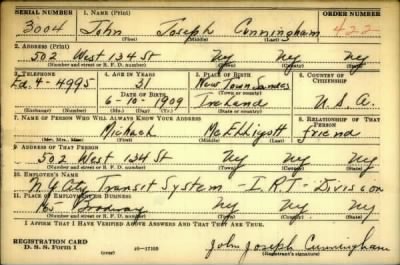 SERIAL NUMBER 1. NAME (Print) ORDER NUMBER
3004 John Joseph Cunningham 422
(First) (Middle) (Last)
2. ADDRESS (Print)
502 West 134 St Ny Ny Ny
(Number and street or R. F. D. number) (Town) (County) (State)
3. TELEPHONE 4. AGE IN YEARS 5. PLACE OF BIRTH 6. COUNTRY OF CITIZENSHIP
Ed. 4-4995 31 New Town Sandes
DATE OF BIRTH (Town or county)
6-10-1909 Ireland U.S.A.
(Exchange) (Number) (Mo.) (Day) (Yr.) (State or country)
7. NAME OF PERSON WHO WILL ALWAYS KNOW YOUR ADDRESS 8. RELATIONSHIP OF THAT PERSON
Michael McElligott friend
(Mr., Mrs., Miss) (First) (Middle) (Last)
9. ADDRESS OF THAT PERSON
502 West 134 St Ny Ny Ny
(Number and street or R. F. D. number) (Town) (County) (State)
10. EMPLOYER'S NAME
N Y City Transit System - I.R.T- Division
11. PLACE OF EMPLOYMENT OR BUSINESS
165 Brodway Ny Ny Ny
(Number and street or R. F. D. number) (Town) (County) (State)
I AFFIRM THAT I HAVE VERIFIED ABOVE ANSWERS AND THAT THEY ARE TRUE.
REGISTRATION CARD
D. S. S. Form 1 16-17105 John Joseph Cunningham
(Registrant's signature)